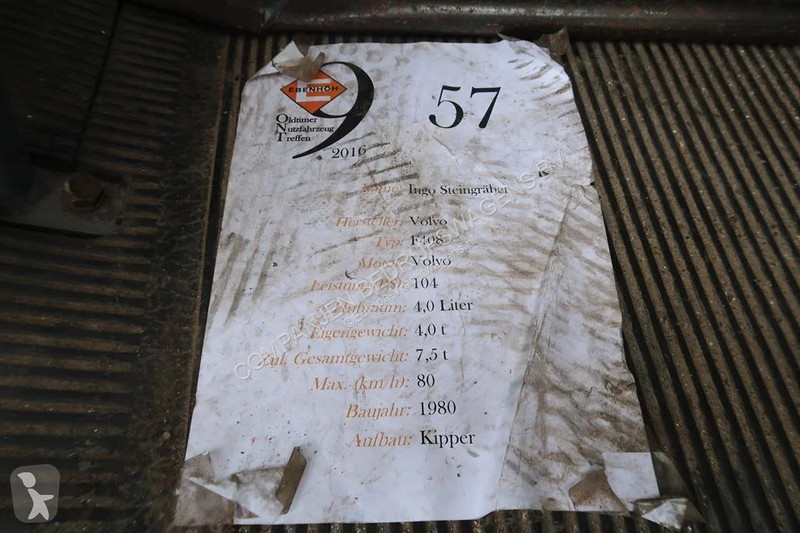 EBENHÖH
9
57
Oldtimer
Nutzfahrzeug
Treffen
2016
Name: Ingo Steingräber
Hersteller: Volvo
Typ: F408
Motor: Volvo
Leistung (PS): 104
Hubraum: 4,0 Liter
Eigengewicht: 4,0 t
Zul. Gesamtgewicht: 7,5 t
Max. (km/h): 80
Baujahr: 1980
Aufbau: Kipper